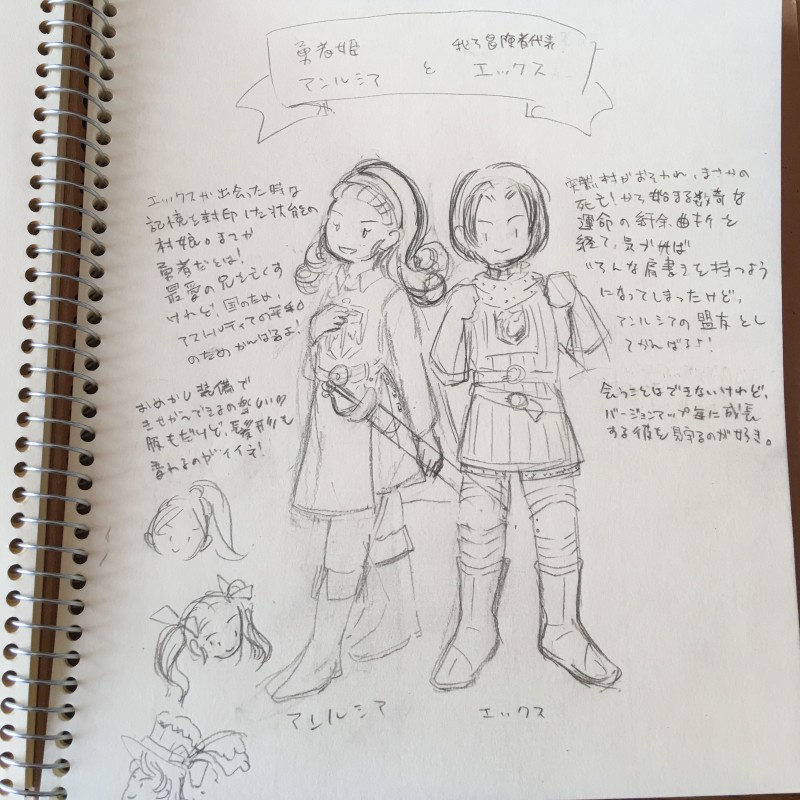 勇者姫
アンルシア
と
我ら冒険者代表
エックス
エックスが出会った時は
記憶を封印した状態の
村娘。まさか
勇者だとは!
最愛の兄を亡くす
けれど、国のため、
アストルティアの平和
のためがんばるよ!
おめかし装備で
きせかえできるの楽しい♡
服もだけど、髪形も
変わるのがイイネ!
突然村がおそわれ、まさかの
死亡!から始まる数奇な
運命の紆余曲折を
経て、気が付けば
いろんな肩書きを持つよう
になってしまったけど、
アンルシアの盟友とし
てがんばるよ!
会うことはできないけれど、
バージョンアップ毎に成長
する彼を見守るのが好き。
アンルシア
エックス